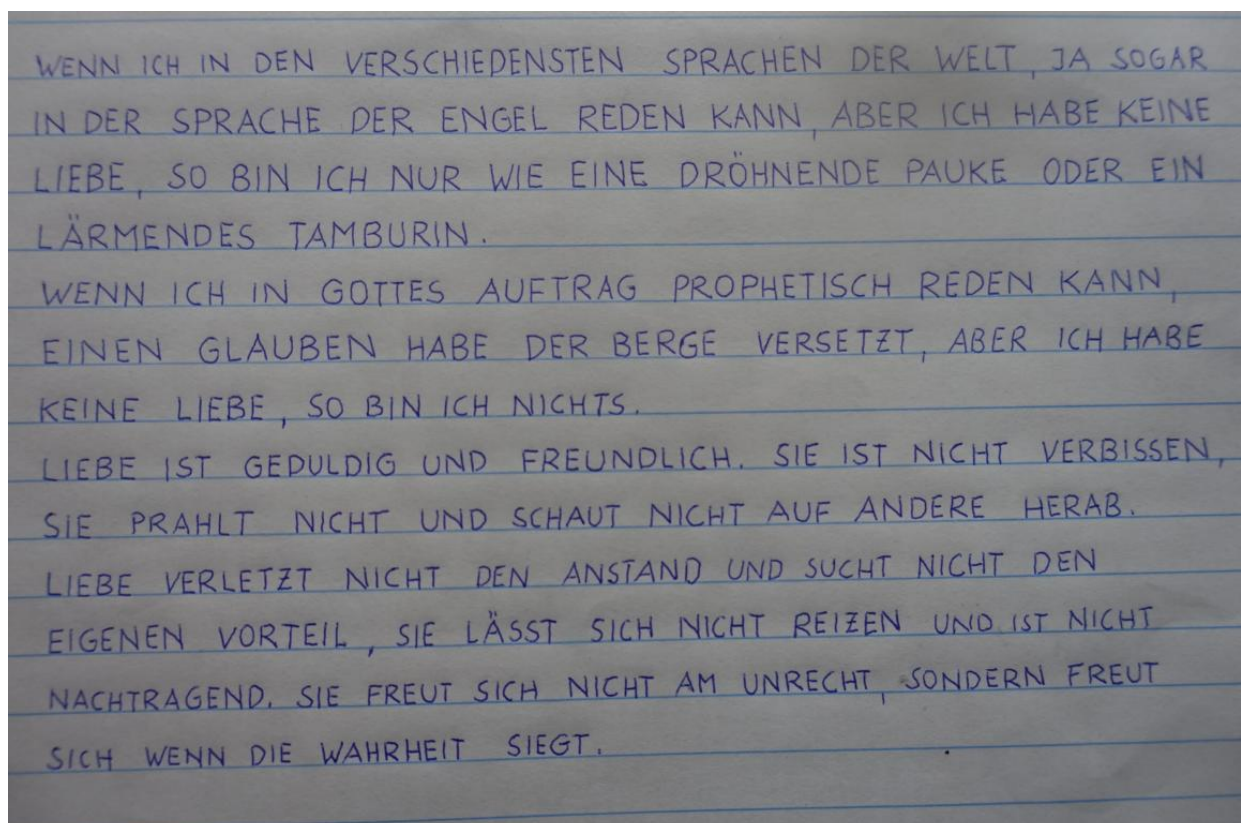 WENN ICH IN DEN VERSCHIEDENSTEN SPRACHEN DER WELT, JA SOGAR
IN DER SPRACHE DER ENGEL REDEN KANN, ABER ICH HABE KEINE
LIEBE, SO BIN ICH NUR WIE EINE DRÖHNENDE PAUKE ODER EIN
LÄRMENDES TAMBURIN.
WENN ICH IN GOTTES AUFTRAG PROPHETISCH REDEN KANN,
EINEN GLAUBEN HABE DER BERGE VERSETZT, ABER ICH HABE
KEINE LIEBE, SO BIN ICH NICHTS.
LIEBE IST GEDULDIG UND FREUNDLICH. SIE IST NICHT VERBISSEN,
SIE PRAHLT NICHT UND SCHAUT NICHT AUF ANDERE HERAB.
LIEBE VERLETZT NICHT DEN ANSTAND UND SUCHT NICHT DEN
EIGENEN VORTEIL, SIE LÄSST SICH NICHT REIZEN UND IST NICHT
NACHTRAGEND. SIE FREUT SICH NICHT AM UNRECHT, SONDERN FREUT
SICH WENN DIE WAHRHEIT SIEGT.